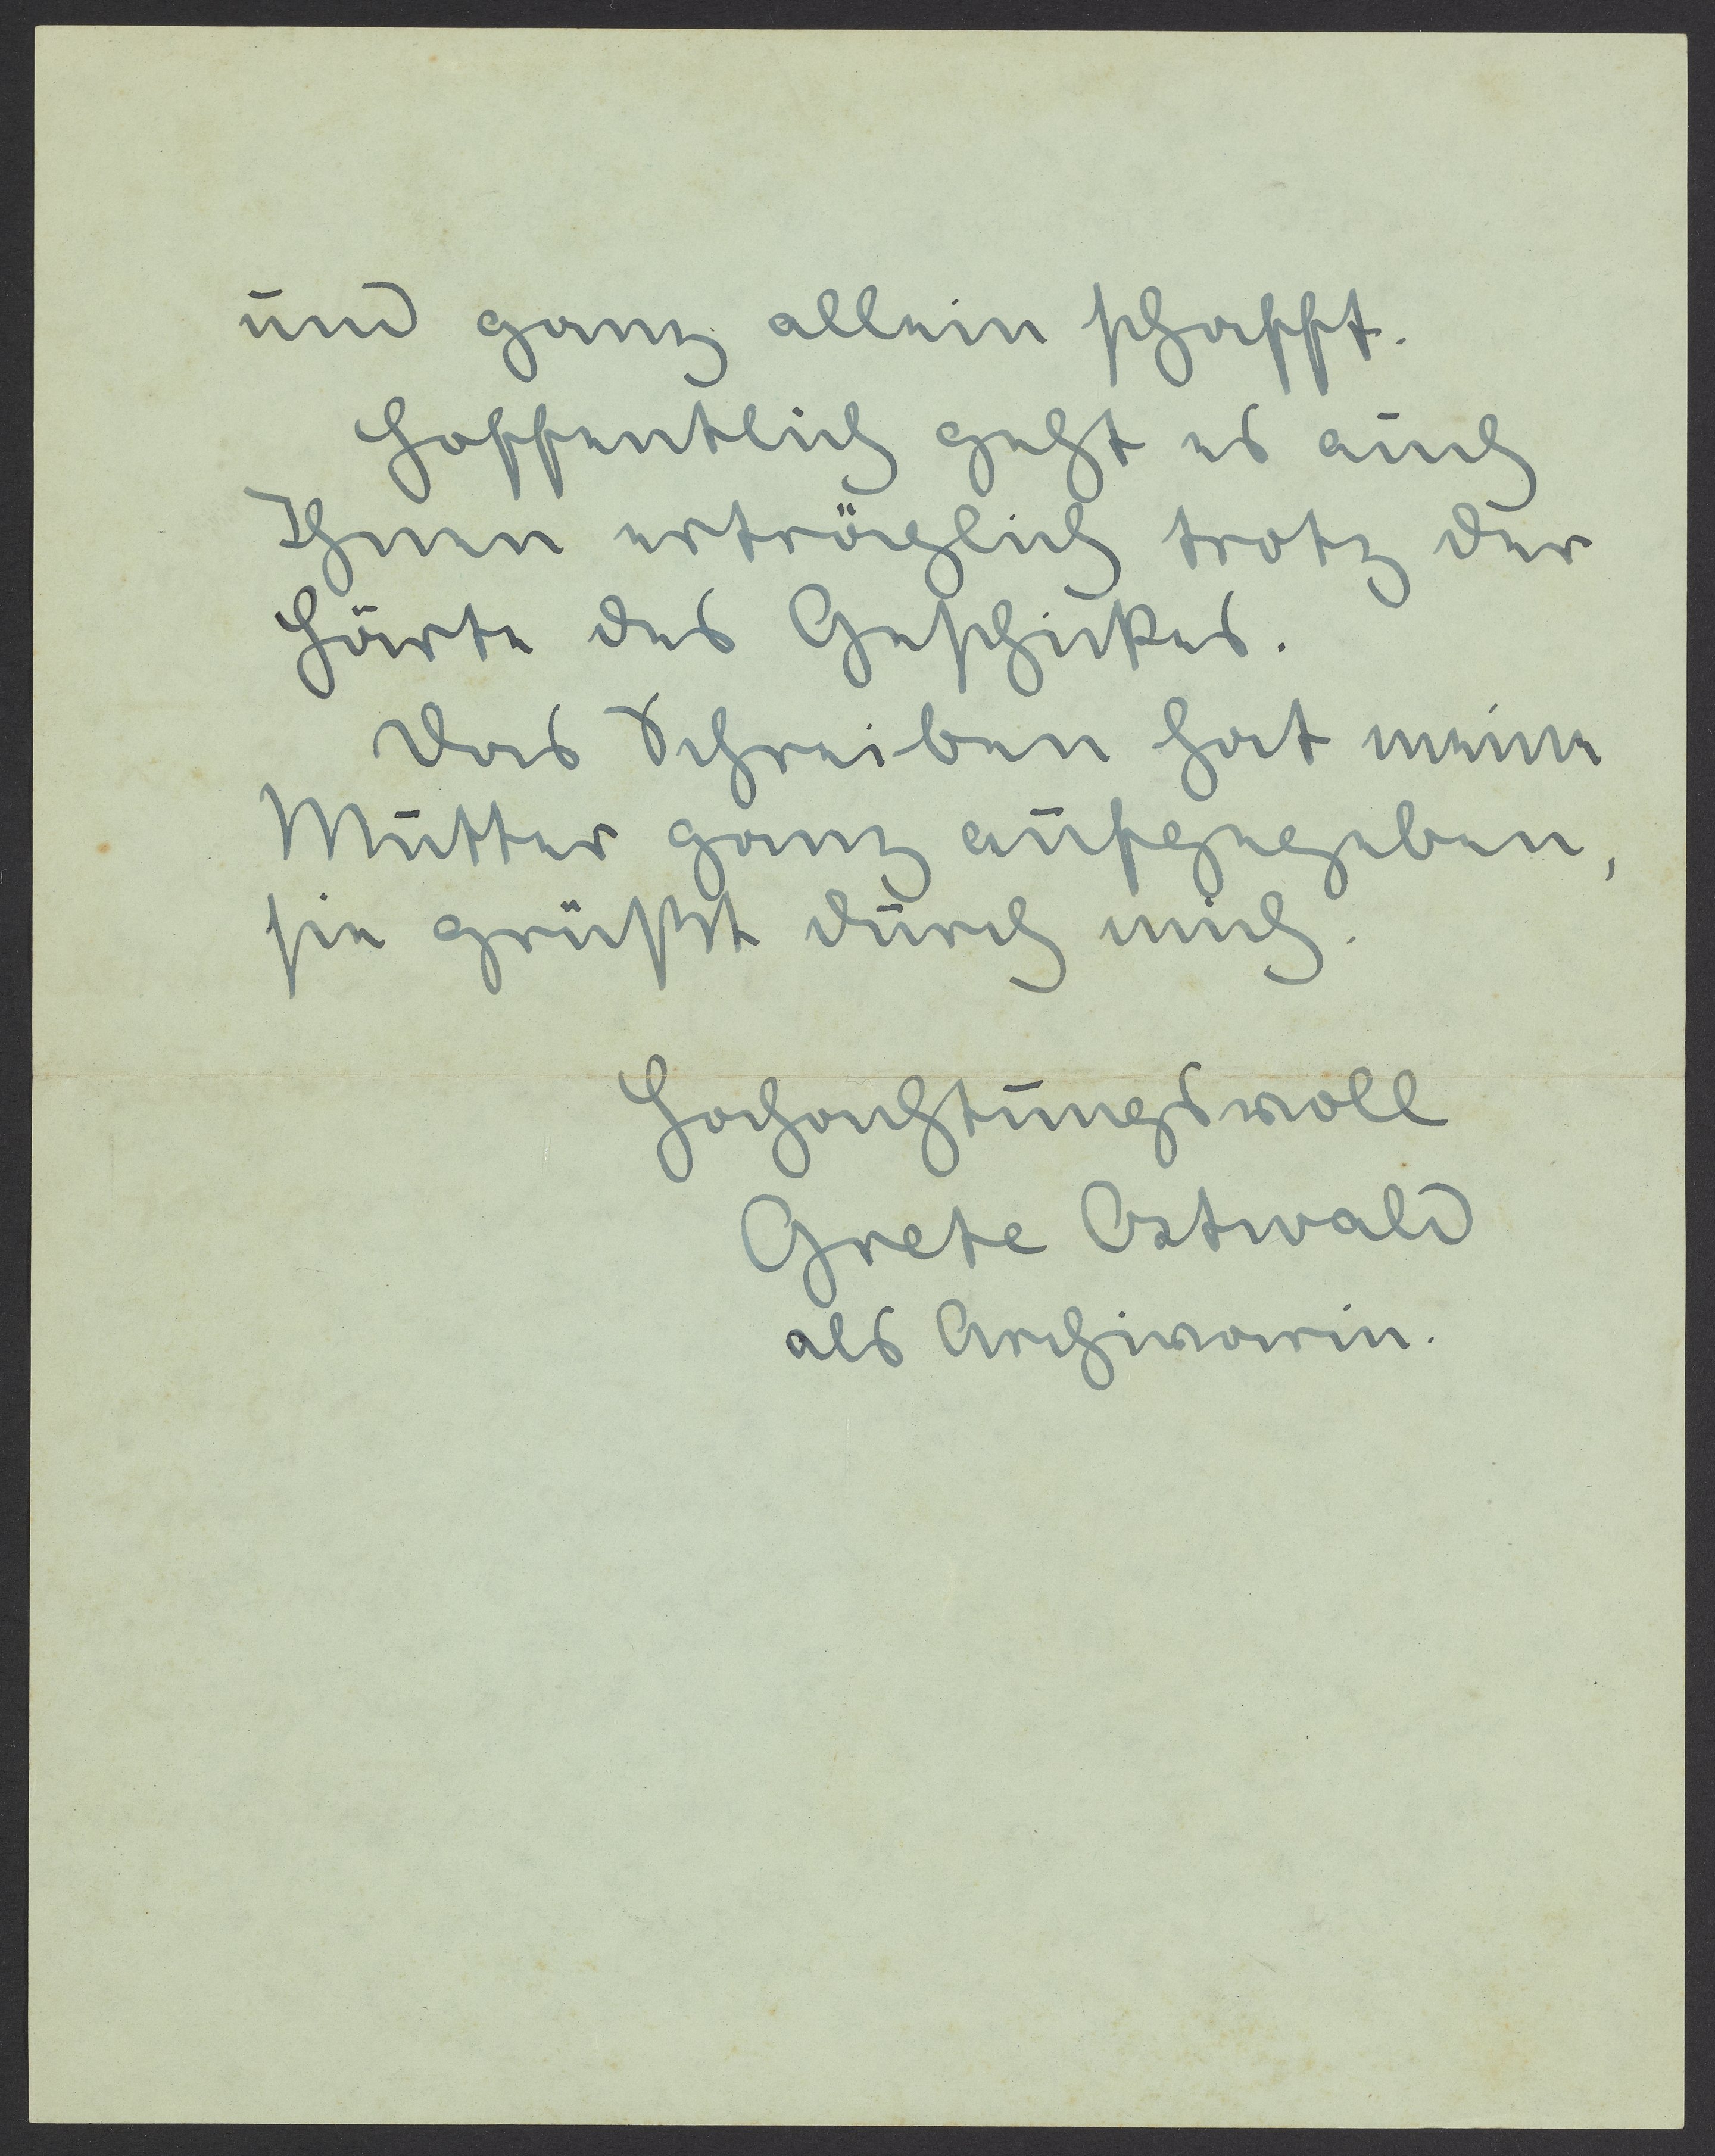 und ganz allein schafft.
Hoffentlich geht es auch
Ihnen erträglich trotz der
Härte des Geschickes.
Das Schreiben hat meine
Mutter ganz aufgegeben,
sie grüßt durch mich.
Hochachtungsvoll
Grete Ostwald
als Archivarin.